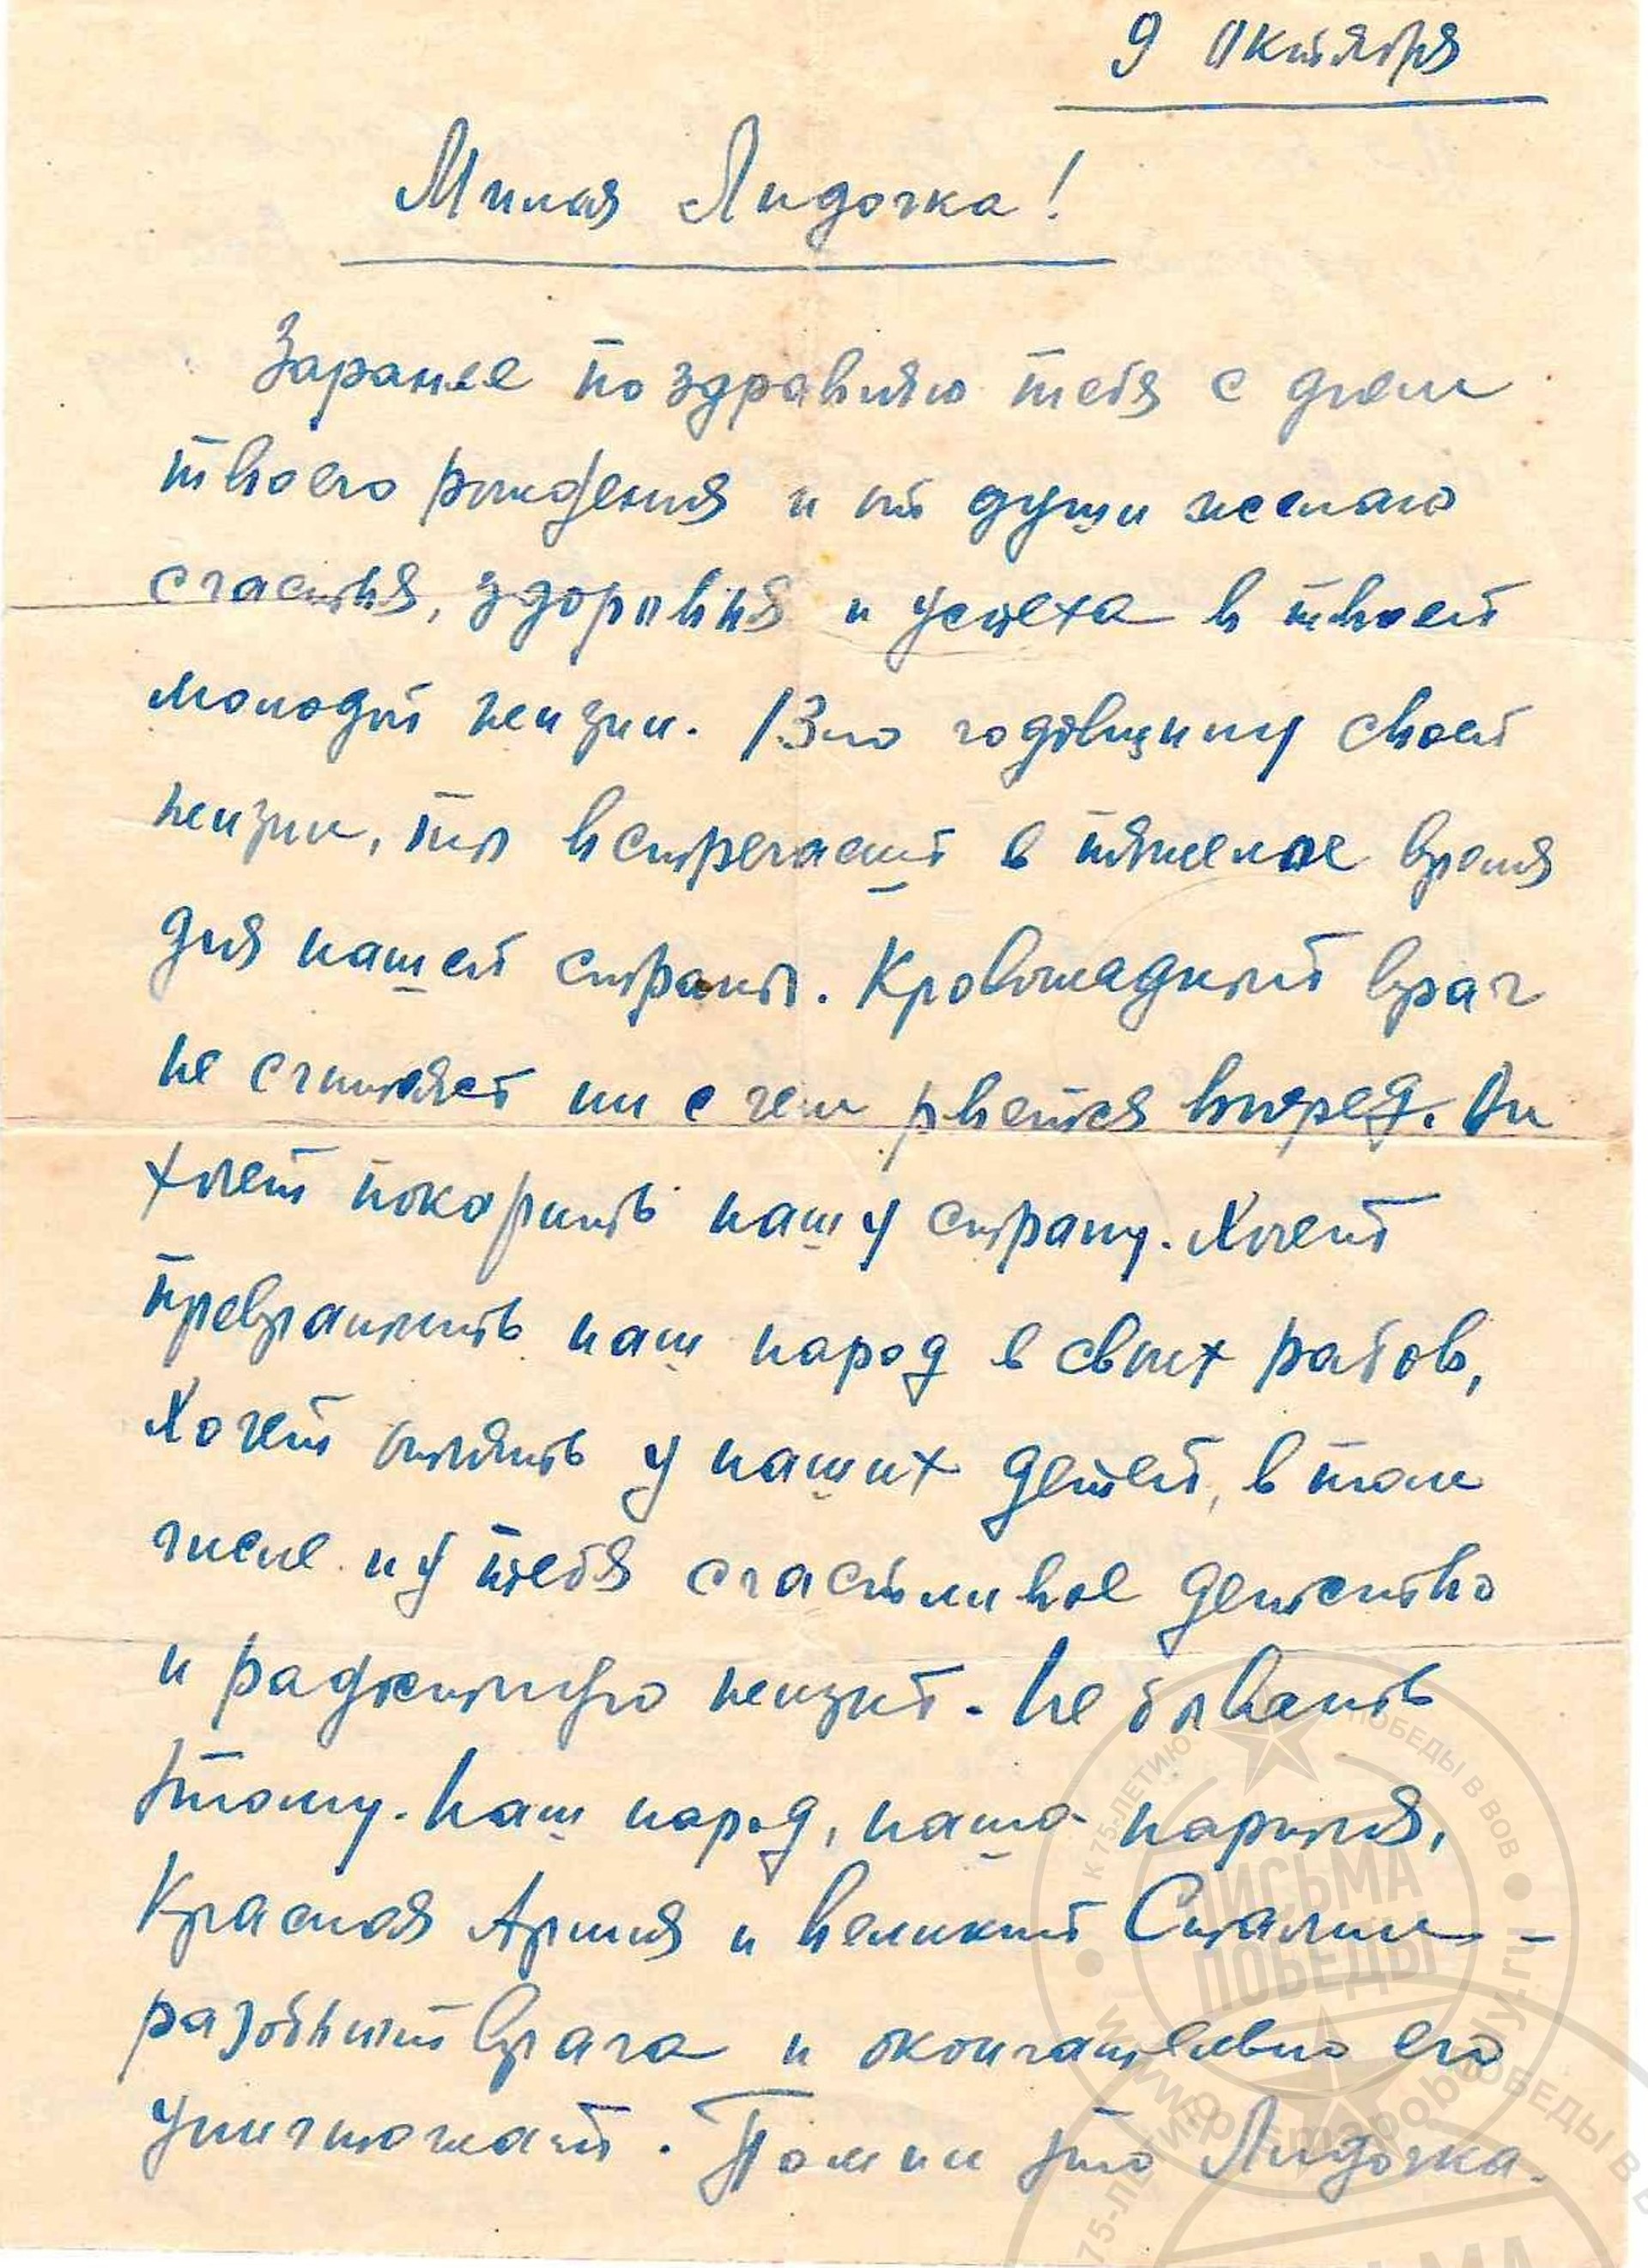 9 октября
Милая Лидочка!
Заранее поздравляю тебя с днем
твоего рождения и от души желаю
счастья, здоровья и успеха в твоей
молодой жизни. 13ю годовщину своей
жизни, ты встречаешь в тяжелое время
для нашей страны. Кровожадный враг
не считаясь ни с чем рвется вперед. Он
хочет покорить нашу страну. Хочет
превратить наш народ в своих рабов,
Хочет отнять у наших детей, в том
числе и у тебя счастливое детство
и радостную жизнь. Не бывать
этому. Наш народ, наша партия,
Красная Армия и великий Сталин –
разобьют врага и окончательно его
уничтожат. Помни это Лидочка.
К 75-ЛЕТИЮ ПОБЕДЫ В ВОВ
ПИСЬМА
ПОБЕДЫ
www.pismapobedy.ru